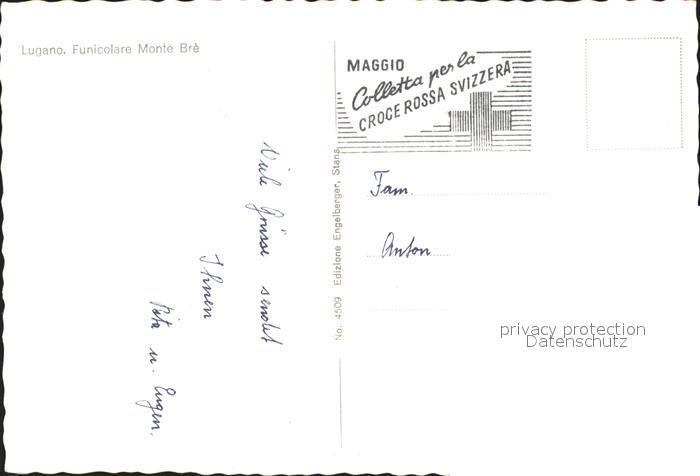 Lugano. Funicolare Monte Brè
MAGGIO
Colletta per la
CROCE ROSSA SVIZZERA
Viele Grüsse sendet
Ihnen
Rita u. Eugen.
No. 4509 Edizione Engelberger, Stans
Fam.
Anton
privacy protection
Datenschutz